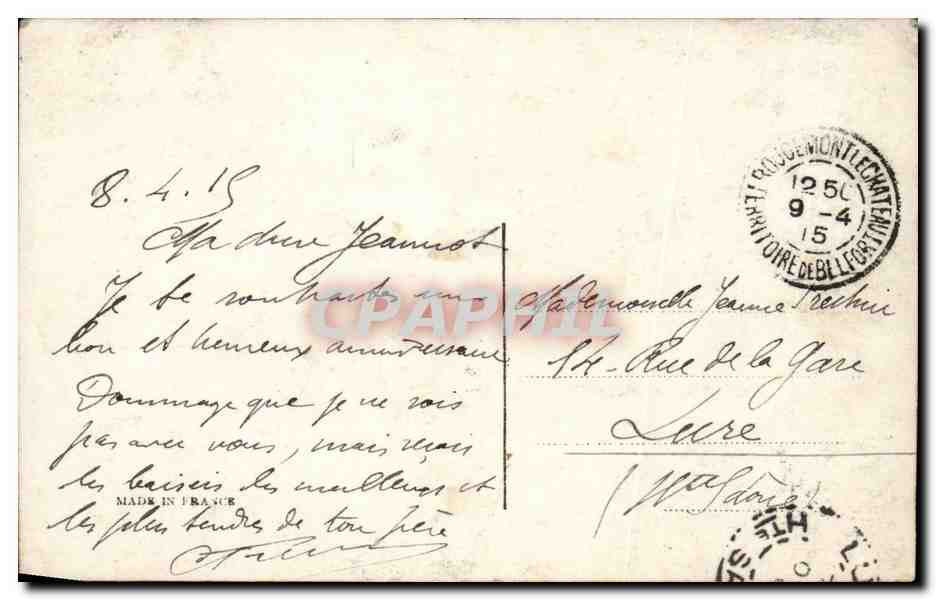 8.4.15
Ma chère Jeannot
Je te souhaite un
bon et heureux anniversaire
Dommage que je ne sois
pas avec vous, mais reçois
les baisers les meilleurs et
les plus tendres de ton père
MADE IN FRANCE
Mademoiselle Jeanne
14 - Rue de la Gare
Lure
(Hte Saône)
ROUGEMONT LE CHATEAU
TERRITOIRE DE BELFORT
12 50
9 - 4
15
CPAPHIL